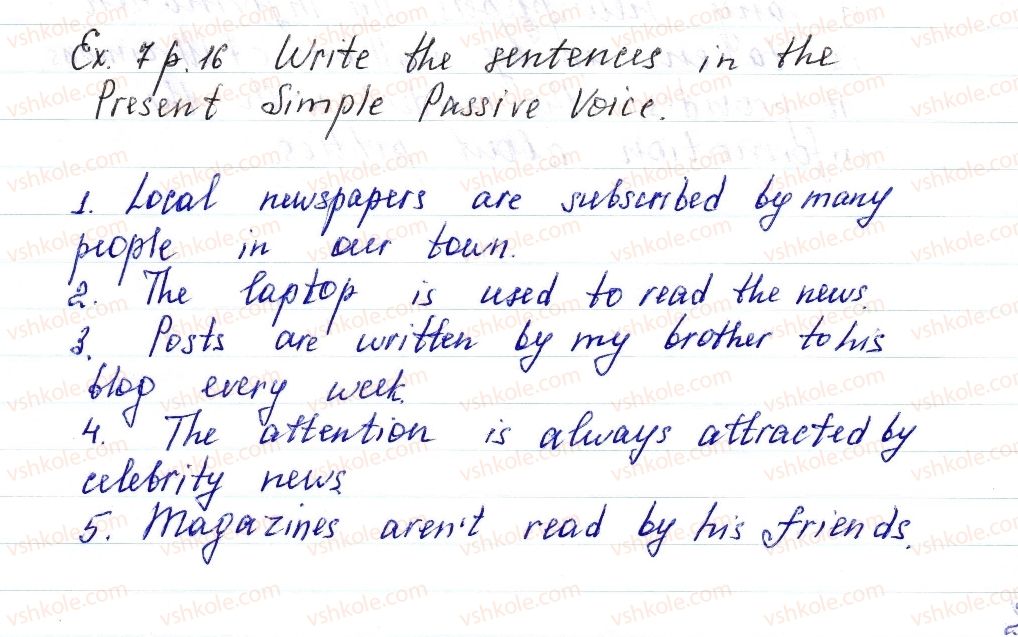 Ex. 7 p. 16 Write the sentences in the
Present Simple Passive Voice.
1. Local newspapers are subscribed by many
people in our town.
2. The laptop is used to read the news.
3. Posts are written by my brother to his
blog every week.
4. The attention is always attracted by
celebrity news
5. Magazines aren't read by his friends.
vshkole.com